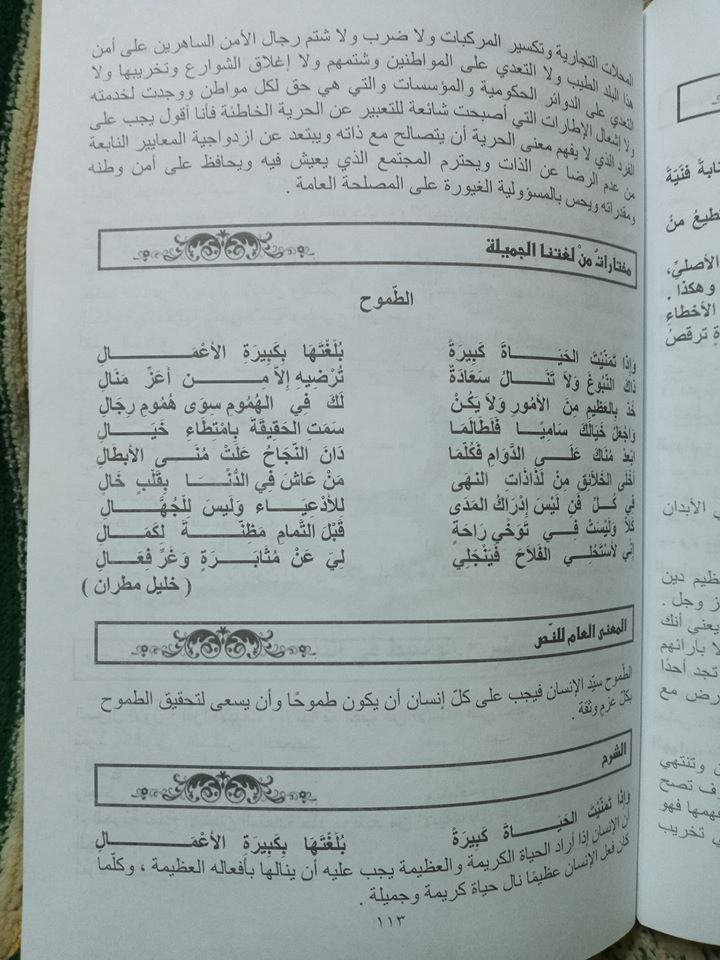 المحلات التجارية وتكسير المركبات ولا ضرب ولا شتم رجال الأمن الساهرين على أمن
هذا البلد الطيب ولا التعدي على المواطنين وشتمهم ولا إغلاق الشوارع وتخريبها ولا
التعدي على الدوائر الحكومية والمؤسسات والتي هي حق لكل مواطن ووجدت لخدمته
ولا إشعال الإطارات التي أصبحت شائعة للتعبير عن الحرية الخاطئة فأنا أقول يجب على
الفرد الذي لا يفهم معنى الحرية أن يتصالح مع ذاته ويبتعد عن ازدواجية المعايير النابعة
من عدم الرضا عن الذات ويحترم المجتمع الذي يعيش فيه ويحافظ على أمن وطنه
ومقدراته ويحس بالمسؤولية الغيورة على المصلحة العامة .
مختارات من لغتنا الجميلة
الطّموح
وَإِذا تَمَنَّيْتَ الحَيَـاةَ كَبِيرَةً بُلِّغْتَهَا بِكَبِيرَةِ الأعْمَـالِ
ذَاكَ النُّبُوغُ وَلاَ تَنَـالُ سَعَادَةٌ تُرْضِيهِ إِلاَّ مِـنْ أعَزِّ مَنَالِ
خُذْ بِالعَظِيمِ مِنَ الأُمُورِ وَلاَ يَكُنْ لَكَ فِي الهُمُومِ سِوَى هُمُومِ رِجَالِ
وَاجْعَلْ خَيَالَكَ سَامِيًا فَلَطَالَمَا سَمَتِ الحَقِيقَة بِامْتِطَاءِ خَيَـالِ
ابْعِدْ مُنَاكَ عَلَـى الدَّوَامِ فَكُلَّمَا دَانَ النَّجَاحُ عَلَتْ مُنَـى الأبطَالِ
أَخْلَى الخَلاَئِقِ مِنْ لَذَاذَاتِ النهَى مَنْ عَاشَ فِي الدُّنْيَا بِقَلْبٍ خَالِ
فِي كُـلِّ فَنٍ لَيْسَ إِدْرَاكُ المَدَى للأدْعِيَـاءِ وَلَيسَ لِلْجُهَّـالِ
كَلاَّ وَلَيْسَتْ فِـي تَوَخِّي رَاحَةٍ قَبْلَ التَّمَامِ مَظنَّـةٌ لِكَمَـالِ
إِنِّي لأَسْتَحْلِي الفَلاَحَ فَيَنْجَلِي لِيَ عَنْ مُثَابَـرَةٍ وَغُرِّ فِعَـالِ
( خليل مطران )
المعنى العام للنّص
الطّموح سيّد الإنسان فيجب على كلّ إنسان أن يكون طموحًا وأن يسعى لتحقيق الطموح
بكلّ عزمٍ وثقة .
الشرح
وَإِذا تَمَنَّيْتَ الحَيَـاةَ كَبِيرَةً بُلِّغْتَهَا بِكَبِيرَةِ الأعْمَـالِ
أن الإنسان إذا أراد الحياة الكريمة والعظيمة يجب عليه أن ينالها بأفعاله العظيمة ، وكلّما
كان فعل الإنسان عظيمًا نال حياة كريمة وجميلة .
١١٣
ابةً فَنّيّةً
طيعُ منْ
الأصليِّ،
وهكذا .
الأخطاءِ
ةٍ ترقصُ
ي الأبدان
ظيم دين
ز وجل .
يعني أنك
لا بآرائهم
تجد أحدًا
رض مع
ن وتنتهي
ف تصح
فهمها فهو
ي تخريب